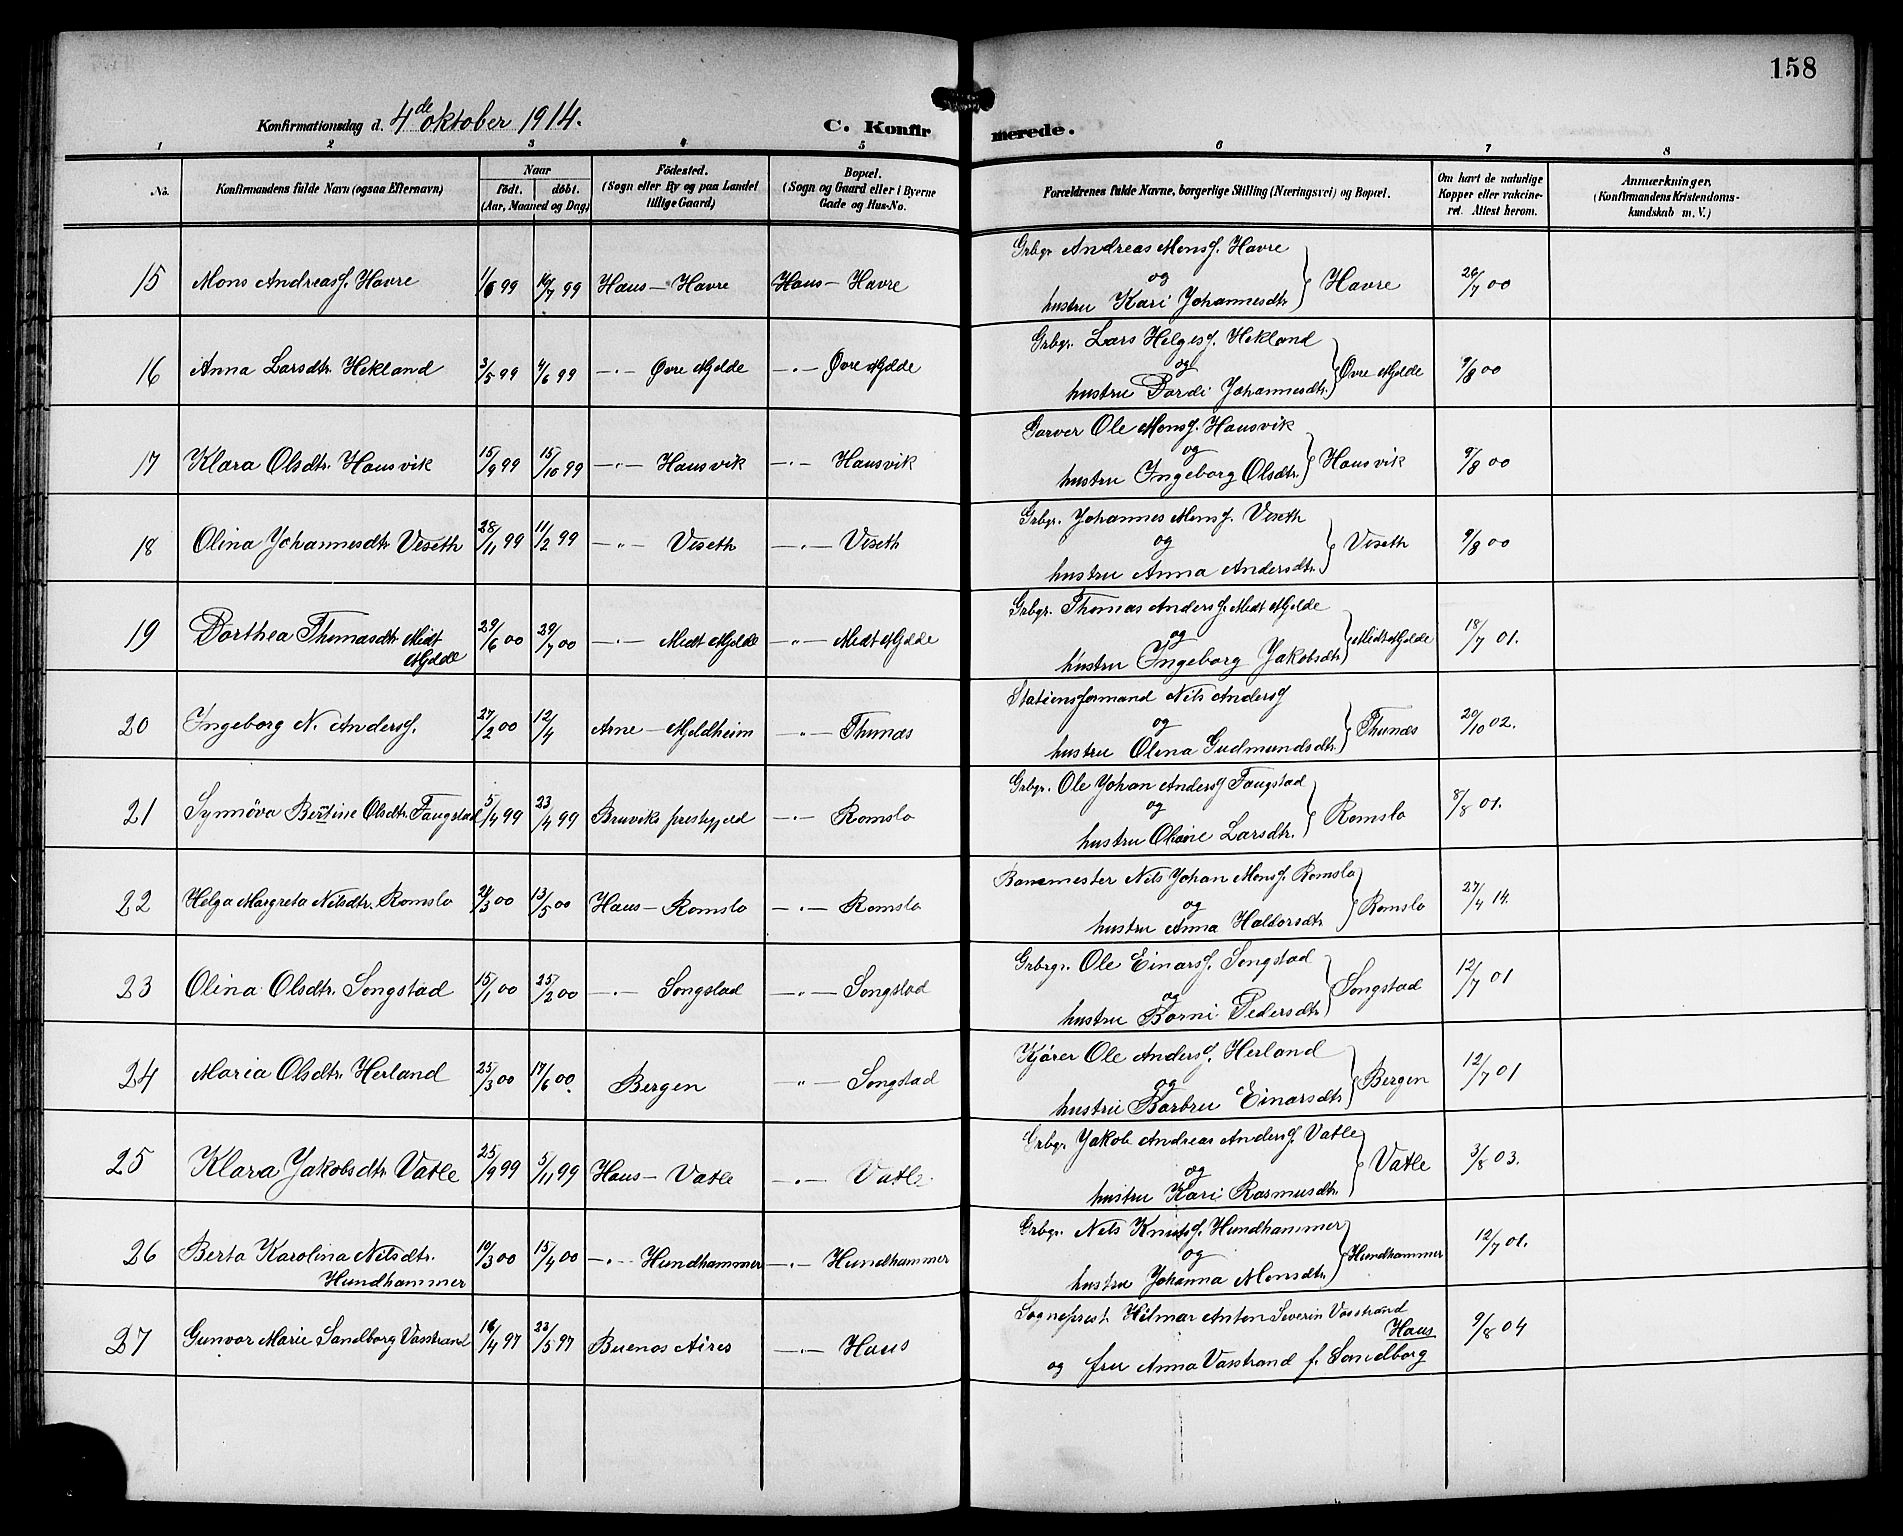 158
Konfirmationsdag d. 4de oktober 1914. C. Konfirmerede.
1 2 3 4 5 6 7 8
No. Konfirmandens fulde Navn (ogsaa Efternavn) Naar födt. döbt. (Aar, Maaned og Dag) Födested. (Sogn eller By og paa Landet tillige Gaard) Bopæl. (Sogn og Gaard eller i Byerne Gade og Hus-No. Forældrenes fulde Navne, borgerlige Stilling (Næringsvei) og Bopæl. Om havt de naturlige Kopper eller vakcineret. Attest herom. Anmærkninger. (Konfirmandens Kristendomskundskab m. V.)
15 Mons Andreasf. Havre 1/6 99 16/7 99 Haus — Havre Haus — Havre Grbgr. Andreas Monsf. Havre
og
hustru Kari Johannesdtr. } Havre 26/7 00
16 Anna Larsdtr. Hekland 3/5 99 4/6 99 —"— Øvre Mjelde —"— Øvre Mjelde Grbgr. Lars Helgesf. Hekland
og
hustru Dordi Johannesdtr. } Øvre Mjelde 9/8 00
17 Klara Olsdtr. Hausvik 15/9 99 15/10 99 —"— Hausvik —"— Hausvik Garver Ole Monsf. Hausvik
og
hustru Ingeborg Olsdtr. } Hausvik 9/8 00
18 Olina Johannesdtr Viseth 28/11 99 11/2 99 —"— Viseth —"— Viseth Grbgr. Johannes Monsf. Viseth
og
hustru Anna Andersdtr. } Viseth 9/8 00
19 Dorthea Thomasdtr. Midt
Mjelde 29/6 00 29/7 00 —"— Midt Mjelde —"— Midt Mjelde Grbgr. Thomas Andersf. Midt Mjelde
og
hustru Ingeborg Jakobsdtr. } Midt Mjelde 18/7 01.
20 Ingeborg N. Andersf. 27/2 00 12/4 Arne — Mjeldheim —"— Thunæs Stationsformand Nils Andersf
og
hustru Olina Gudmundsdtr. } Thunæs 20/10 02.
21 Synnöva Bertine Olsdtr. Faugstad 5/4 99 23/4 99 Bruviks prestegjeld —"— Romslo Grbgr. Ole Johan Andersf Faugstad
og
hustru Larsdtr. } Romslo 8/8 01.
22 Helga Margreta Nilsdtr. Romslo 21/3 00 13/5 00 Haus — Romslo —"— Romslo Banemester Nils Johan Monsf. Romslo
og
hustru Anna Haldorsdtr. } Romslo 27/4 14.
23 Olina Olsdtr. Songstad 15/1 00 25/2 00 —"— Songstad —"— Songstad Grbrgr. Ole Einarsf. Songstad
og
hustru Borni Pedersdtr. } Songstad 12/7 01
24 Maria Olsdtr. Herland 25/3 00 17/6 00. Bergen —"— Songstad Kjörer Ole Andersf. Herland
og
hustru Barbru Einarsdtr. } Bergen 12/7 01
25 Klara Jakobsdtr. Vatle 25/9 99 5/11 99 Haus — Vatle —"— Vatle Grbgr. Jakob Andreas Andersf Vatle
og
hustru Kari Rasmusdtr. } Vatle 3/8 03.
26 Berta Karolina Nilsdtr.
Hundhammer 19/3 00 15/4 00 —"— Hundhammer —"— Hundhammer Grbgr. Nils Knutsf. Hundhammer
og
hustru Johanna Monsdtr. } Hundhammer 12/7 01.
27 Gunvor Marie Sandborg Vasstrand 16/4 97 23/5 97 Buenos Aires —"— Haus Sogneprest Hilmar Anton Severin Vasstrand
Haus
og fru Anna Vasstrand f. Sandborg 9/8 04